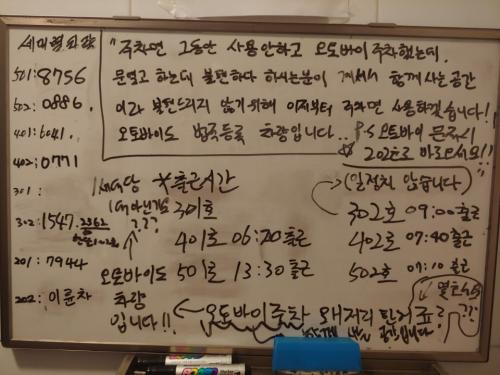 세대별차량
501: 8756
502: 0886.
401: 6041.
402: 0771
301:
302: 1547. 2362
201: 7944
202: 이륜차
"주차면 그동안 사용안하고 오토바이 주차했는데.
문열고 하는데 불편하다 하시는분이 계셔서 함께 사는 공간
이라 불편드리지 않기위해 이제부터 주차면 사용하겠습니다!
오토바이도 법적등록 차량입니다.. P.S 오토바이 문제시
202호로 바로오세요!!"
1세대당
1대 아닌가요
???
오토바이도
차량
입니다!!
*출근시간
301호
401호 06:20 출근
501호 13:30 출근
(일정치 않습니다)
302호 09:00 출근
402호 07:40 출근
502호 07:10 출근
오토바이주차 왜저리 한거죠?
???